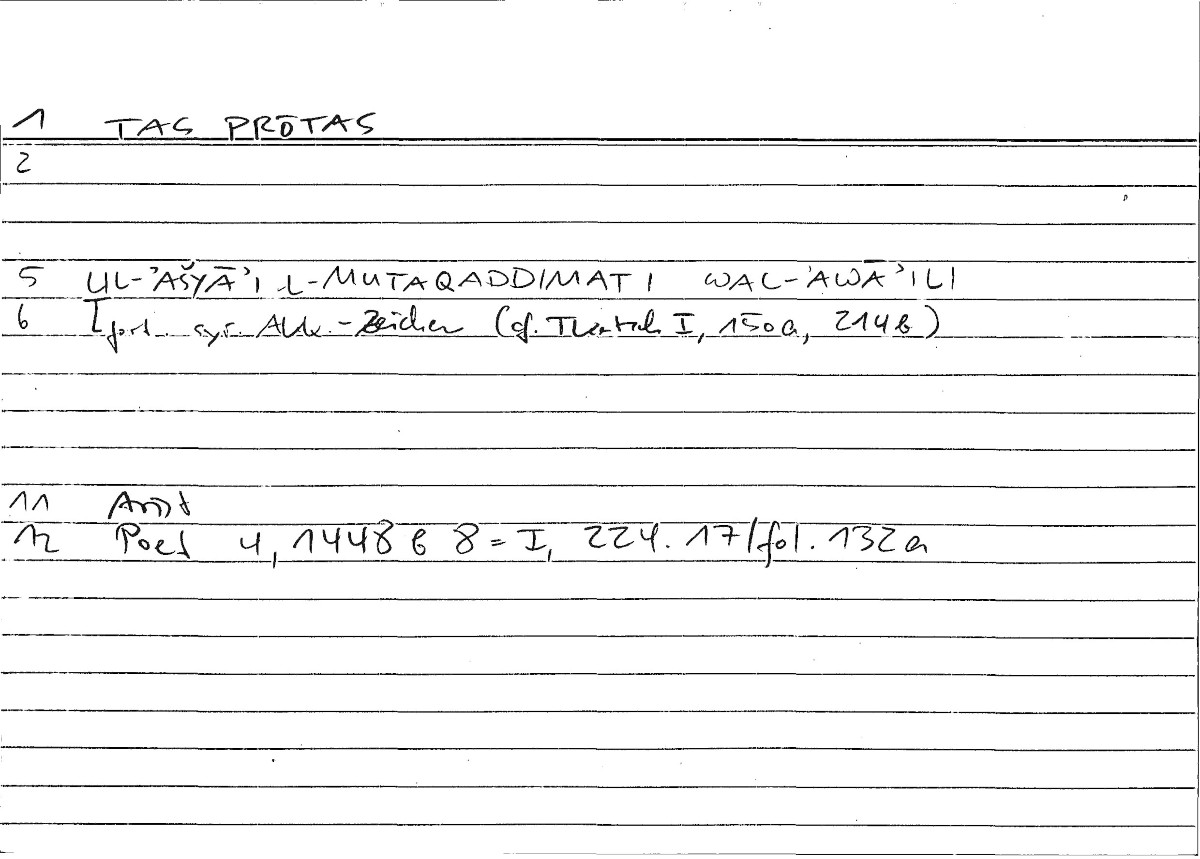 1 TAS PRŌTAS
2
5 UL-ʾAŠYĀʾI L-MUTAQADDIMATI WAL-ʾAWĀʾILI
6 [fort. syr. Akk.-Zeichen (cf. Tkatsch I, 150a, 214b)
11 Arist
12 Poet 4, 1448 b 8 = I, 224.17/fol. 132a